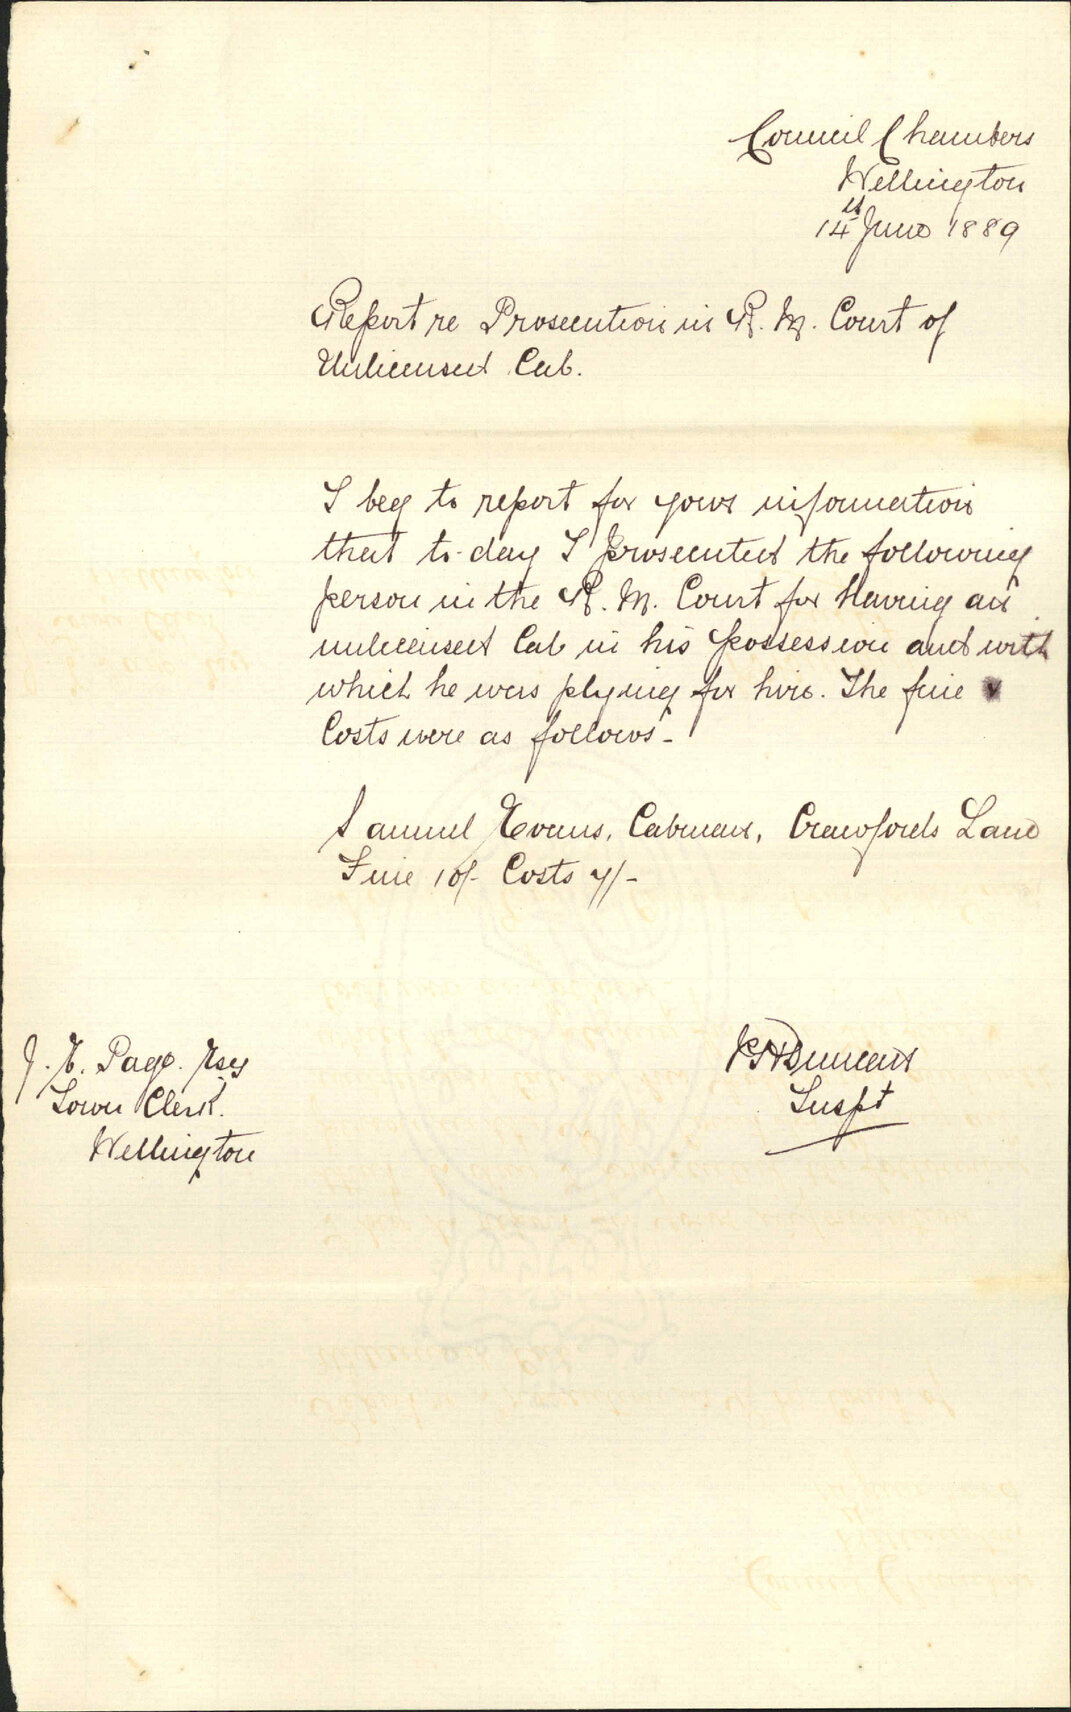 Council Chambers
Wellington
14th June 1889
Report re Prosecution in R. M. Court of
Unlicensed Cab.
I beg to report for your information
that to-day I prosecuted the following
person in the R. M. Court for Having an
unlicensed Cab in his possession and with
which he was plying for hire. The fine &
Costs were as follows -
Samuel Evans, Cabman, Crawfords Lane
Fine 10/- Costs 7/-
J. E. Page. Esq
Town Clerk.
Wellington
Duncan
Inspt